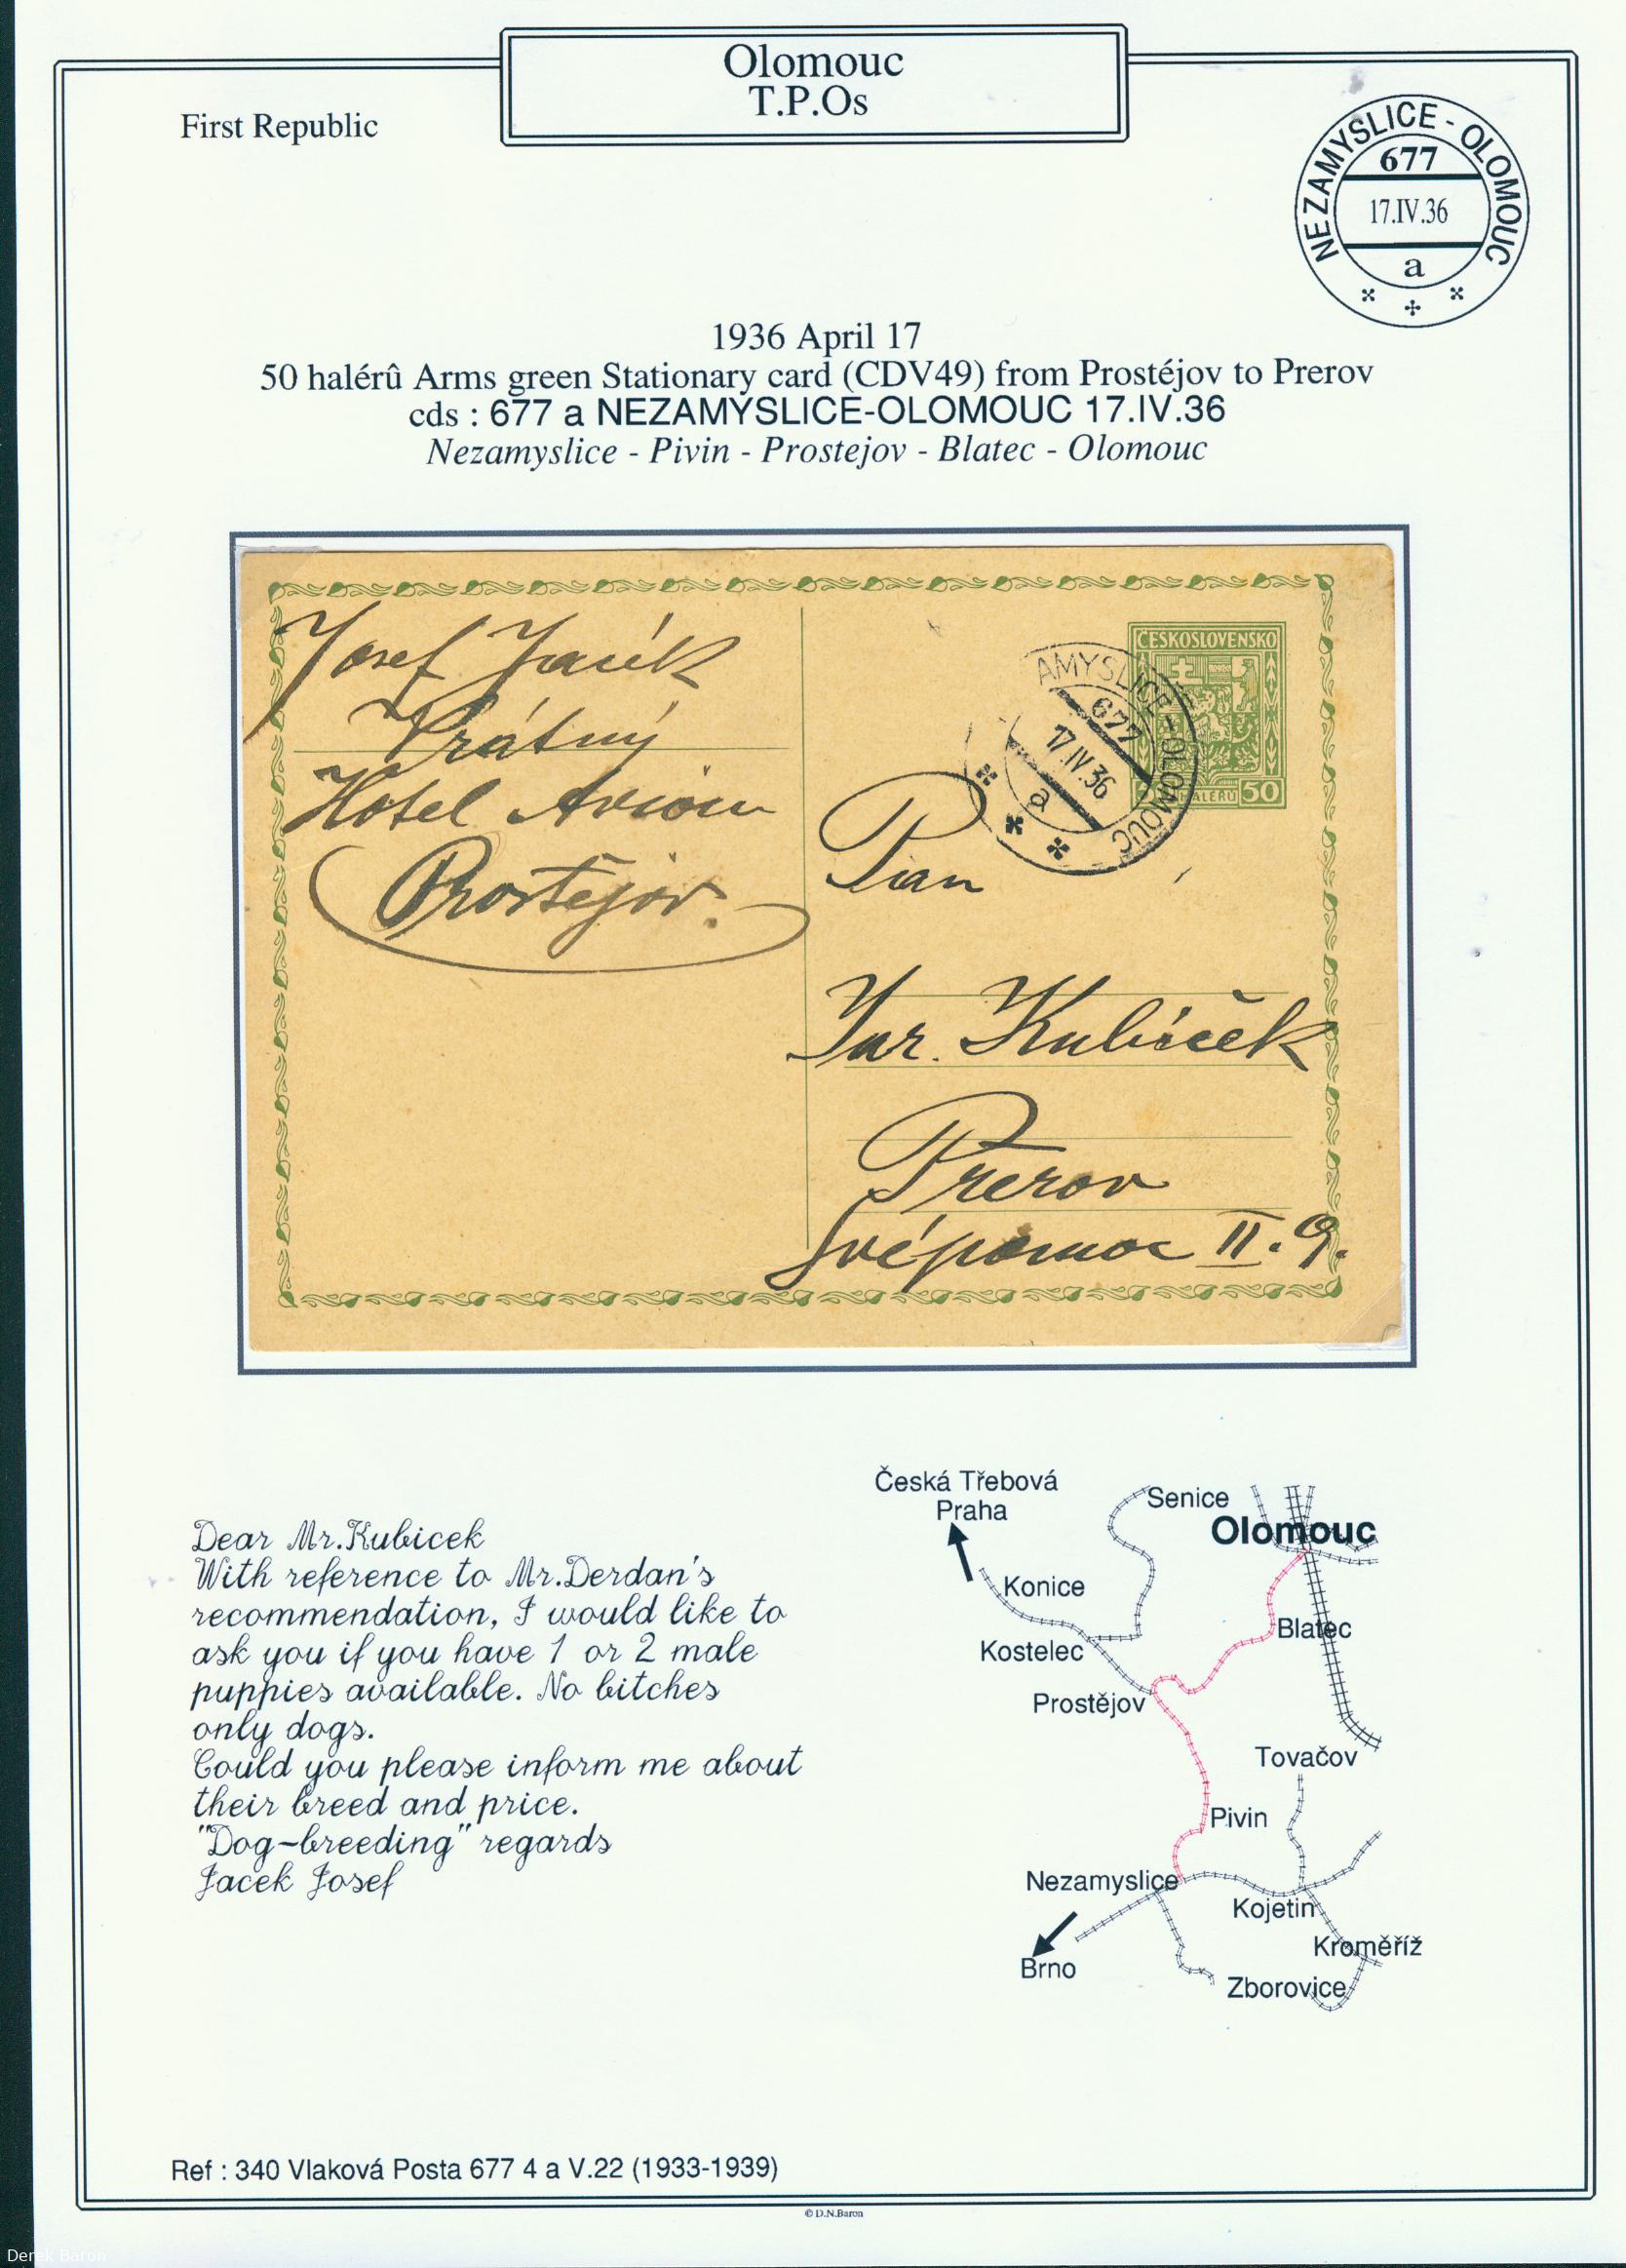 Olomouc
T.P.Os
First Republic
NEZAMYSLICE - OLOMOUC
677
17.IV.36
a
1936 April 17
50 halérû Arms green Stationary card (CDV49) from Prostéjov to Prerov
cds : 677 a NEZAMYSLICE-OLOMOUC 17.IV.36
Nezamyslice - Pivin - Prostejov - Blatec - Olomouc
Josef Jacék
Vrátný
Hotel Avion
Prostějov.
ČESKOSLOVENSKO
HALÉRŮ 50
AMYSLICE-OLOMOUC
677
17.IV.36
a
Pan
Jar. Kubíček
Prerov
Svépomoc II. 9.
Dear Mr.Kubicek
With reference to Mr.Derdan's
recommendation, I would like to
ask you if you have 1 or 2 male
puppies available. No bitches
only dogs.
Could you please inform me about
their breed and price.
"Dog-breeding" regards
Jacek Josef
Česká Třebová
Praha
Senice
Olomouc
Konice
Blatec
Kostelec
Prostějov
Tovačov
Pivin
Nezamyslice
Kojetin
Kroměříž
Brno
Zborovice
Ref : 340 Vlaková Posta 677 4 a V.22 (1933-1939)
© D.N.Baron
Derek Baron